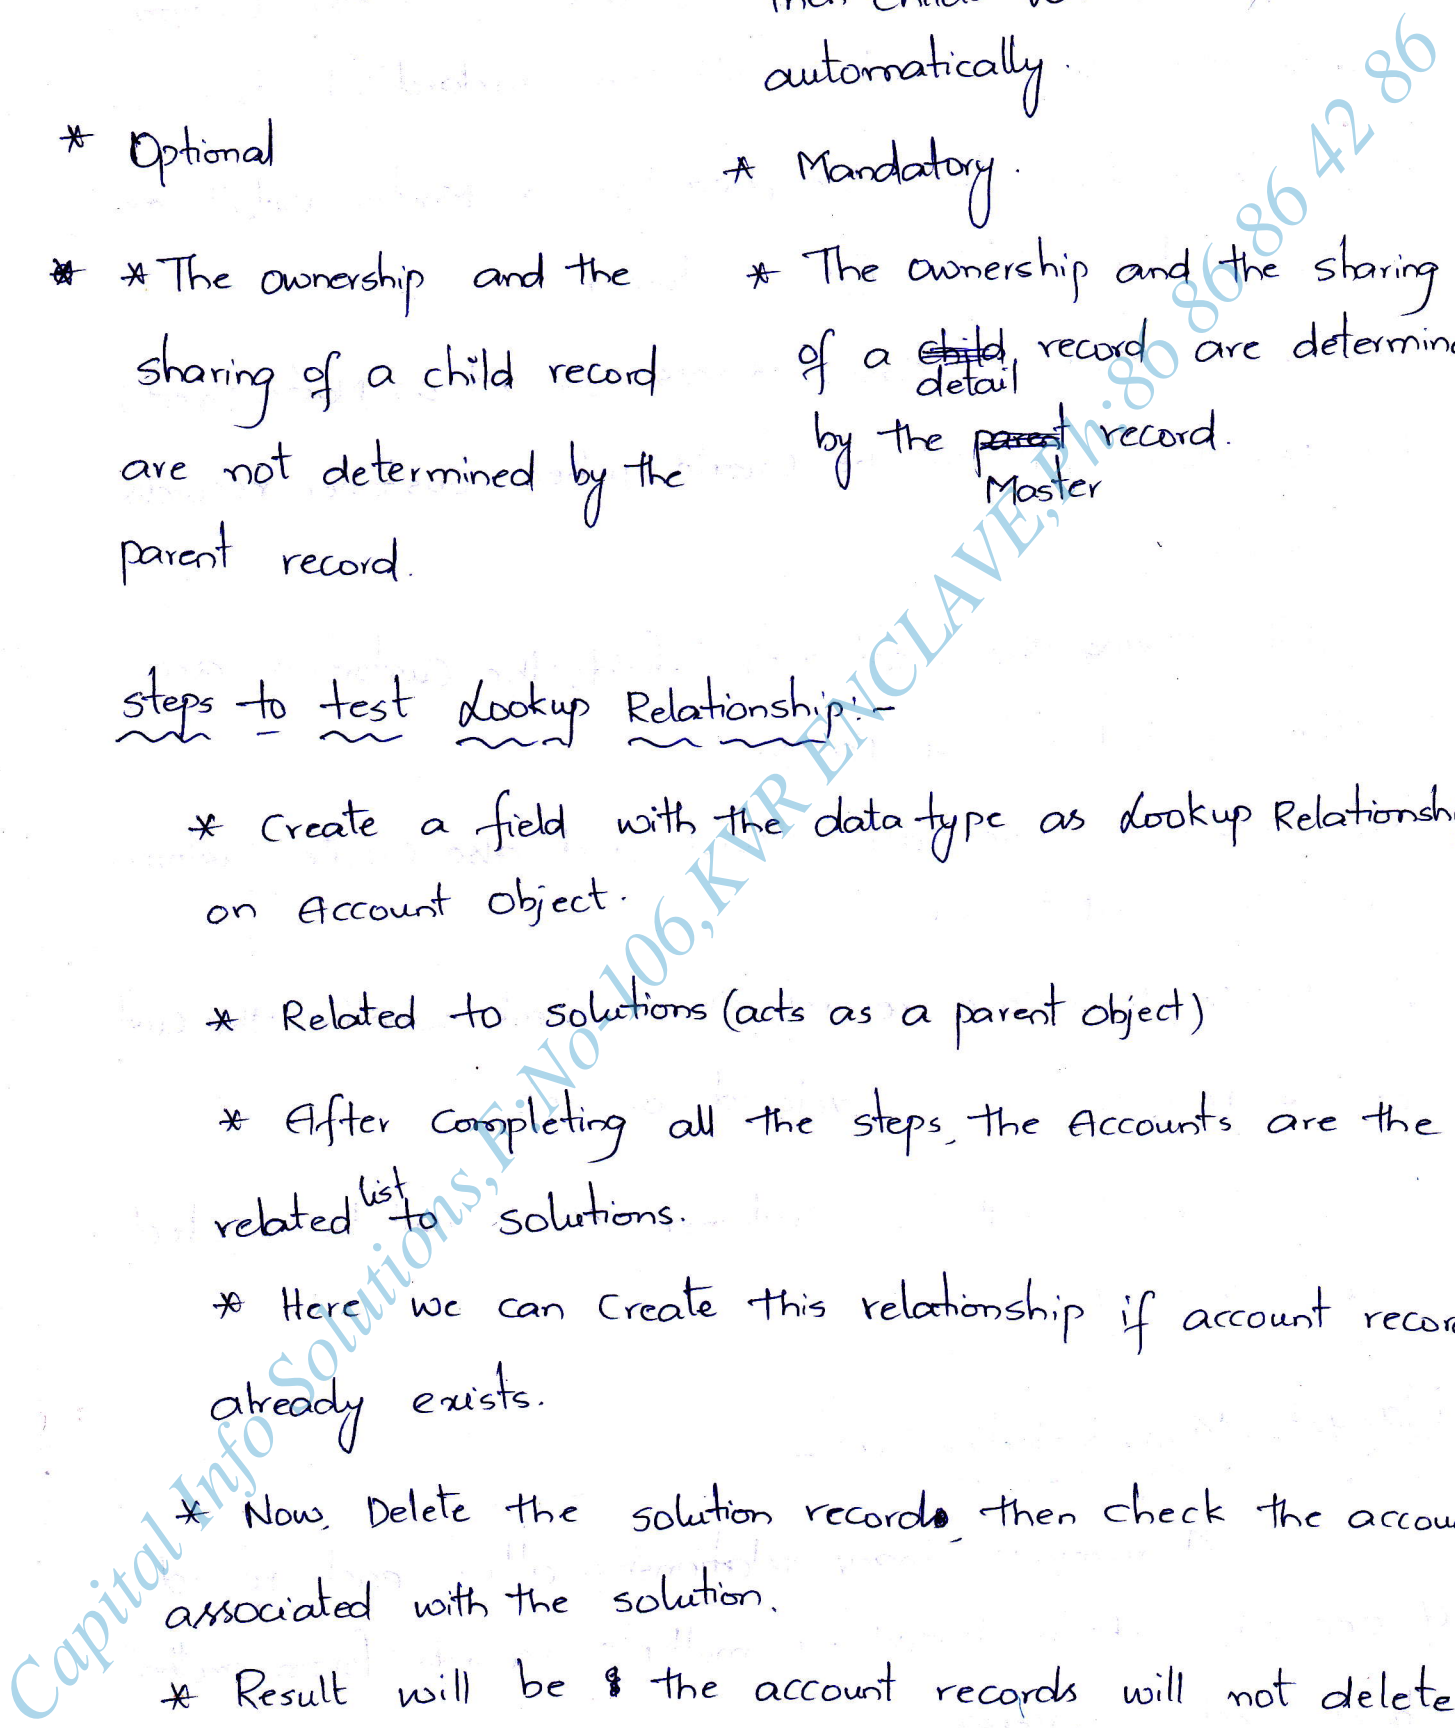 automatically.
* Optional
* Mandatory.
* * The ownership and the
sharing of a child record
are not determined by the
parent record.
* The ownership and the sharing
of a child, record are
detail
by the parent record.
Master
steps to test Lookup Relationship:-
* Create a field with the data type as Lookup
on Account Object.
* Related to solutions (acts as a parent object)
* After Completing all the steps, the Accounts are the
list
related to solutions.
* Here we can Create this relationship if account
already exists.
* Now, Delete the solution records, then check the
associated with the solution.
* Result will be the account records will not delete
Capital Info Solutions,F:No-106,KVR ENCLAVE,Ph:86 86 86 42 86